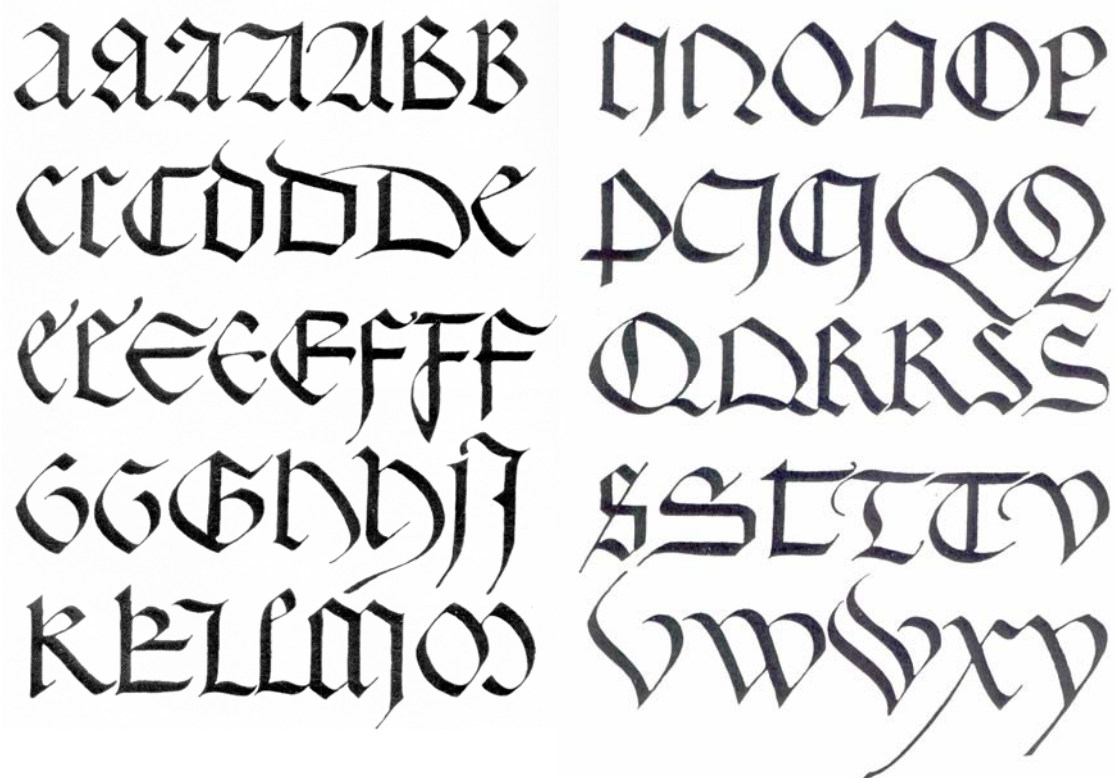 AAAAABB
CCCDDDE
EEEEEFFF
GGGHHIJ
KKLLMM
NNOOOP
PQQQQ
QQRRSS
SSTTTV
VWWXY